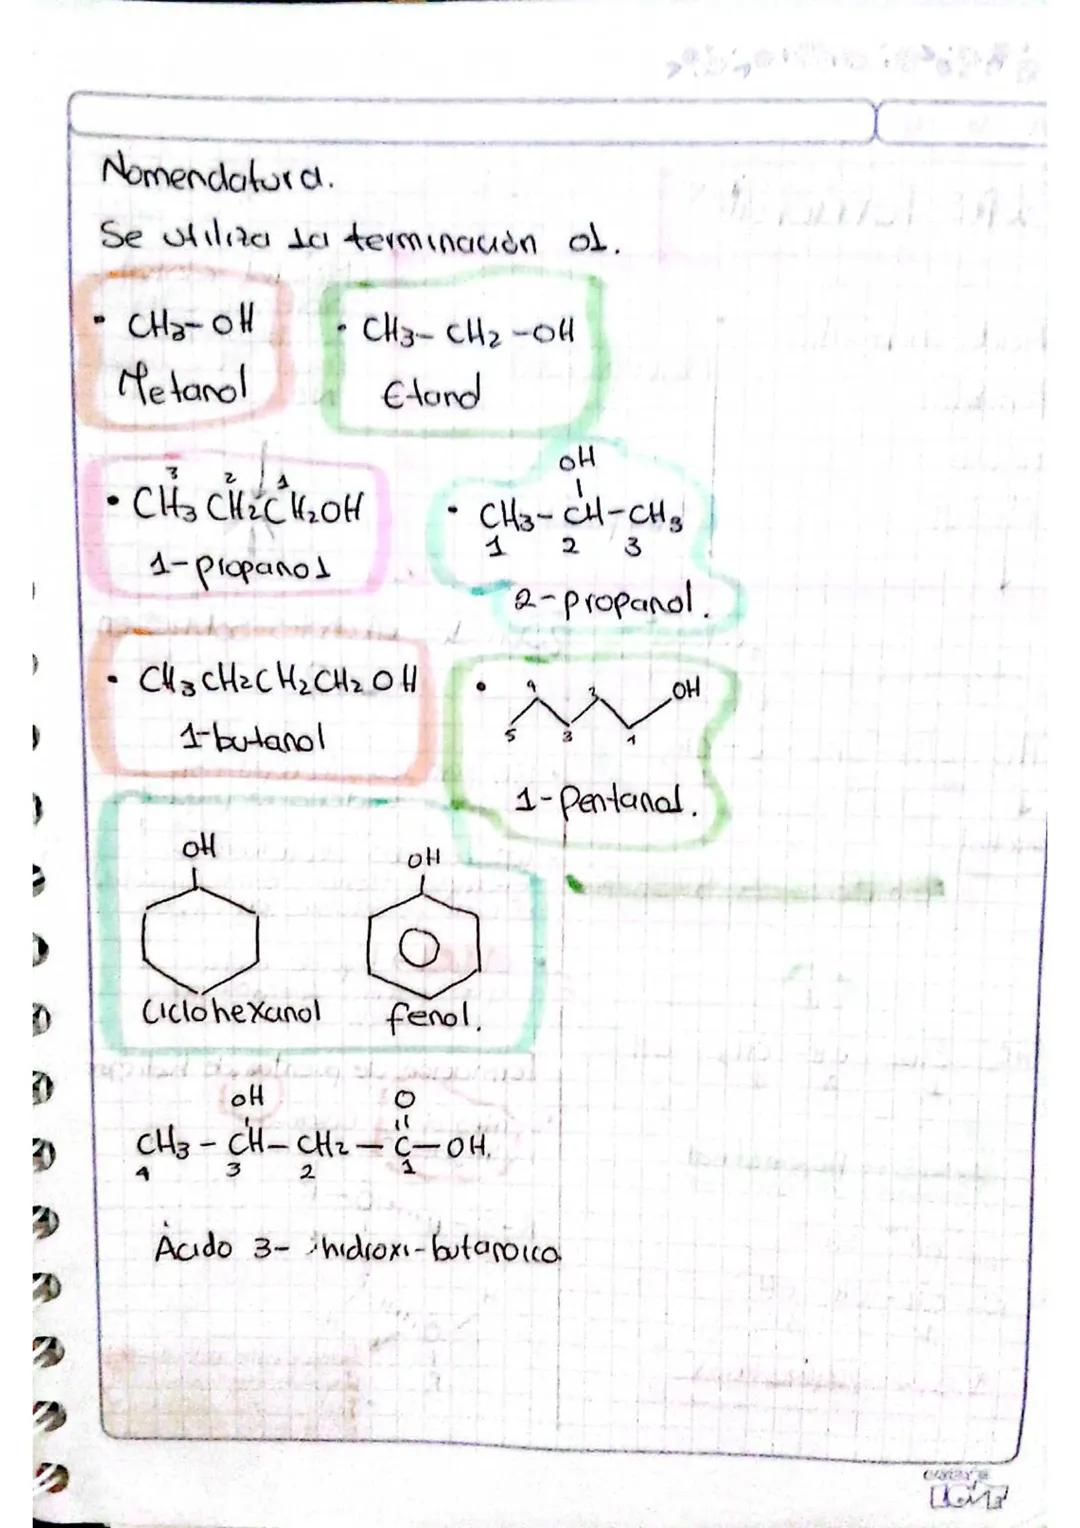 Nomenclatura.
Se utiliza la terminación ol.
• CH3-OH
Metanol
• CH3-CH2-OH
Etanol
3 2 1
• CH3CH2CH2OH
1-propanol
OH
• CH3-CH-CH3
1 2 3
2-propanol.
• CH3CH2CH2CH2OH
1-butanol
• 4 2 OH
5 3 1
1-Pentanol.
OH
Ciclohexanol
OH
fenol.
OH O
CH3-CH-CH2-C-OH.
4 3 2 1
Ácido 3-hidroxi-butanoico
LOVE